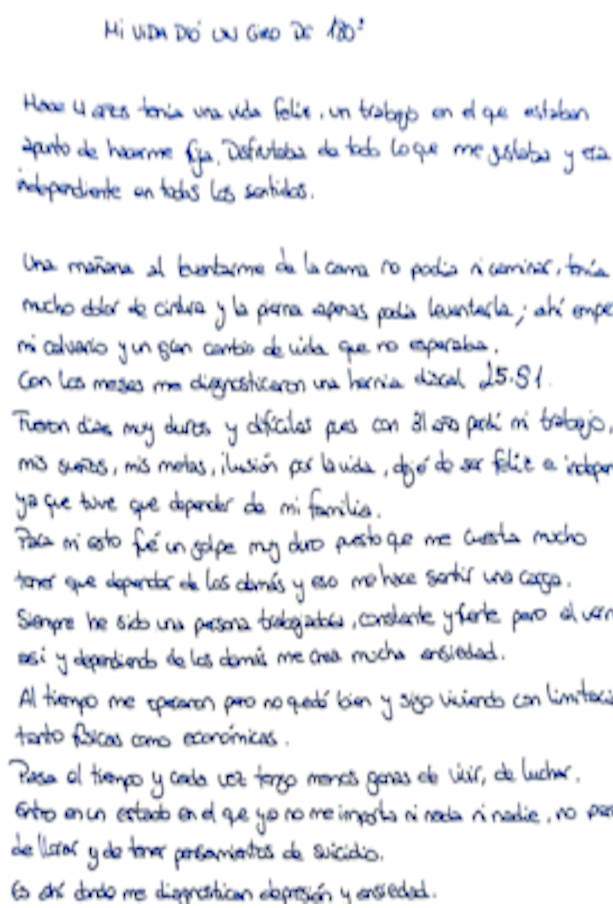 MI VIDA DIÓ UN GIRO DE 180º
Hace 4 años tenía una vida feliz, un trabajo en el que estaban
apunto de hacerme fija, Disfrutaba de todo lo que me gustaba y era
independiente en todos los sentidos.
Una mañana al levantarme de la cama no podía ni caminar, tenía
mucho dolor de cintura y la pierna apenas podía levantarla; ahí empe
mi calvario y un gran cambio de vida que no esperaba.
Con los meses me diagnosticaron una hernia discal L5-S1.
Fueron días muy duros y difíciles pues con 31 años perdí mi trabajo,
mis sueños, mis metas, ilusión por la vida, dejé de ser feliz e indepen
ya que tuve que depender de mi familia.
Para mí esto fué un golpe muy duro puesto que me cuesta mucho
tener que depender de los demás y eso me hace sentir una carga.
Siempre he sido una persona trabajadora, constante y fuerte pero al verm
así y dependiendo de los demás me crea mucha ansiedad.
Al tiempo me operaron pero no quedó bien y sigo viviendo con limitacio
tanto físicas como económicas.
Pasa el tiempo y cada vez tengo menos ganas de vivir, de luchar.
Entro en un estado en el que ya no me importa ni nada ni nadie, no par
de llorar y de tener pensamientos de suicidio.
Es ahí donde me diagnostican depresión y ansiedad.